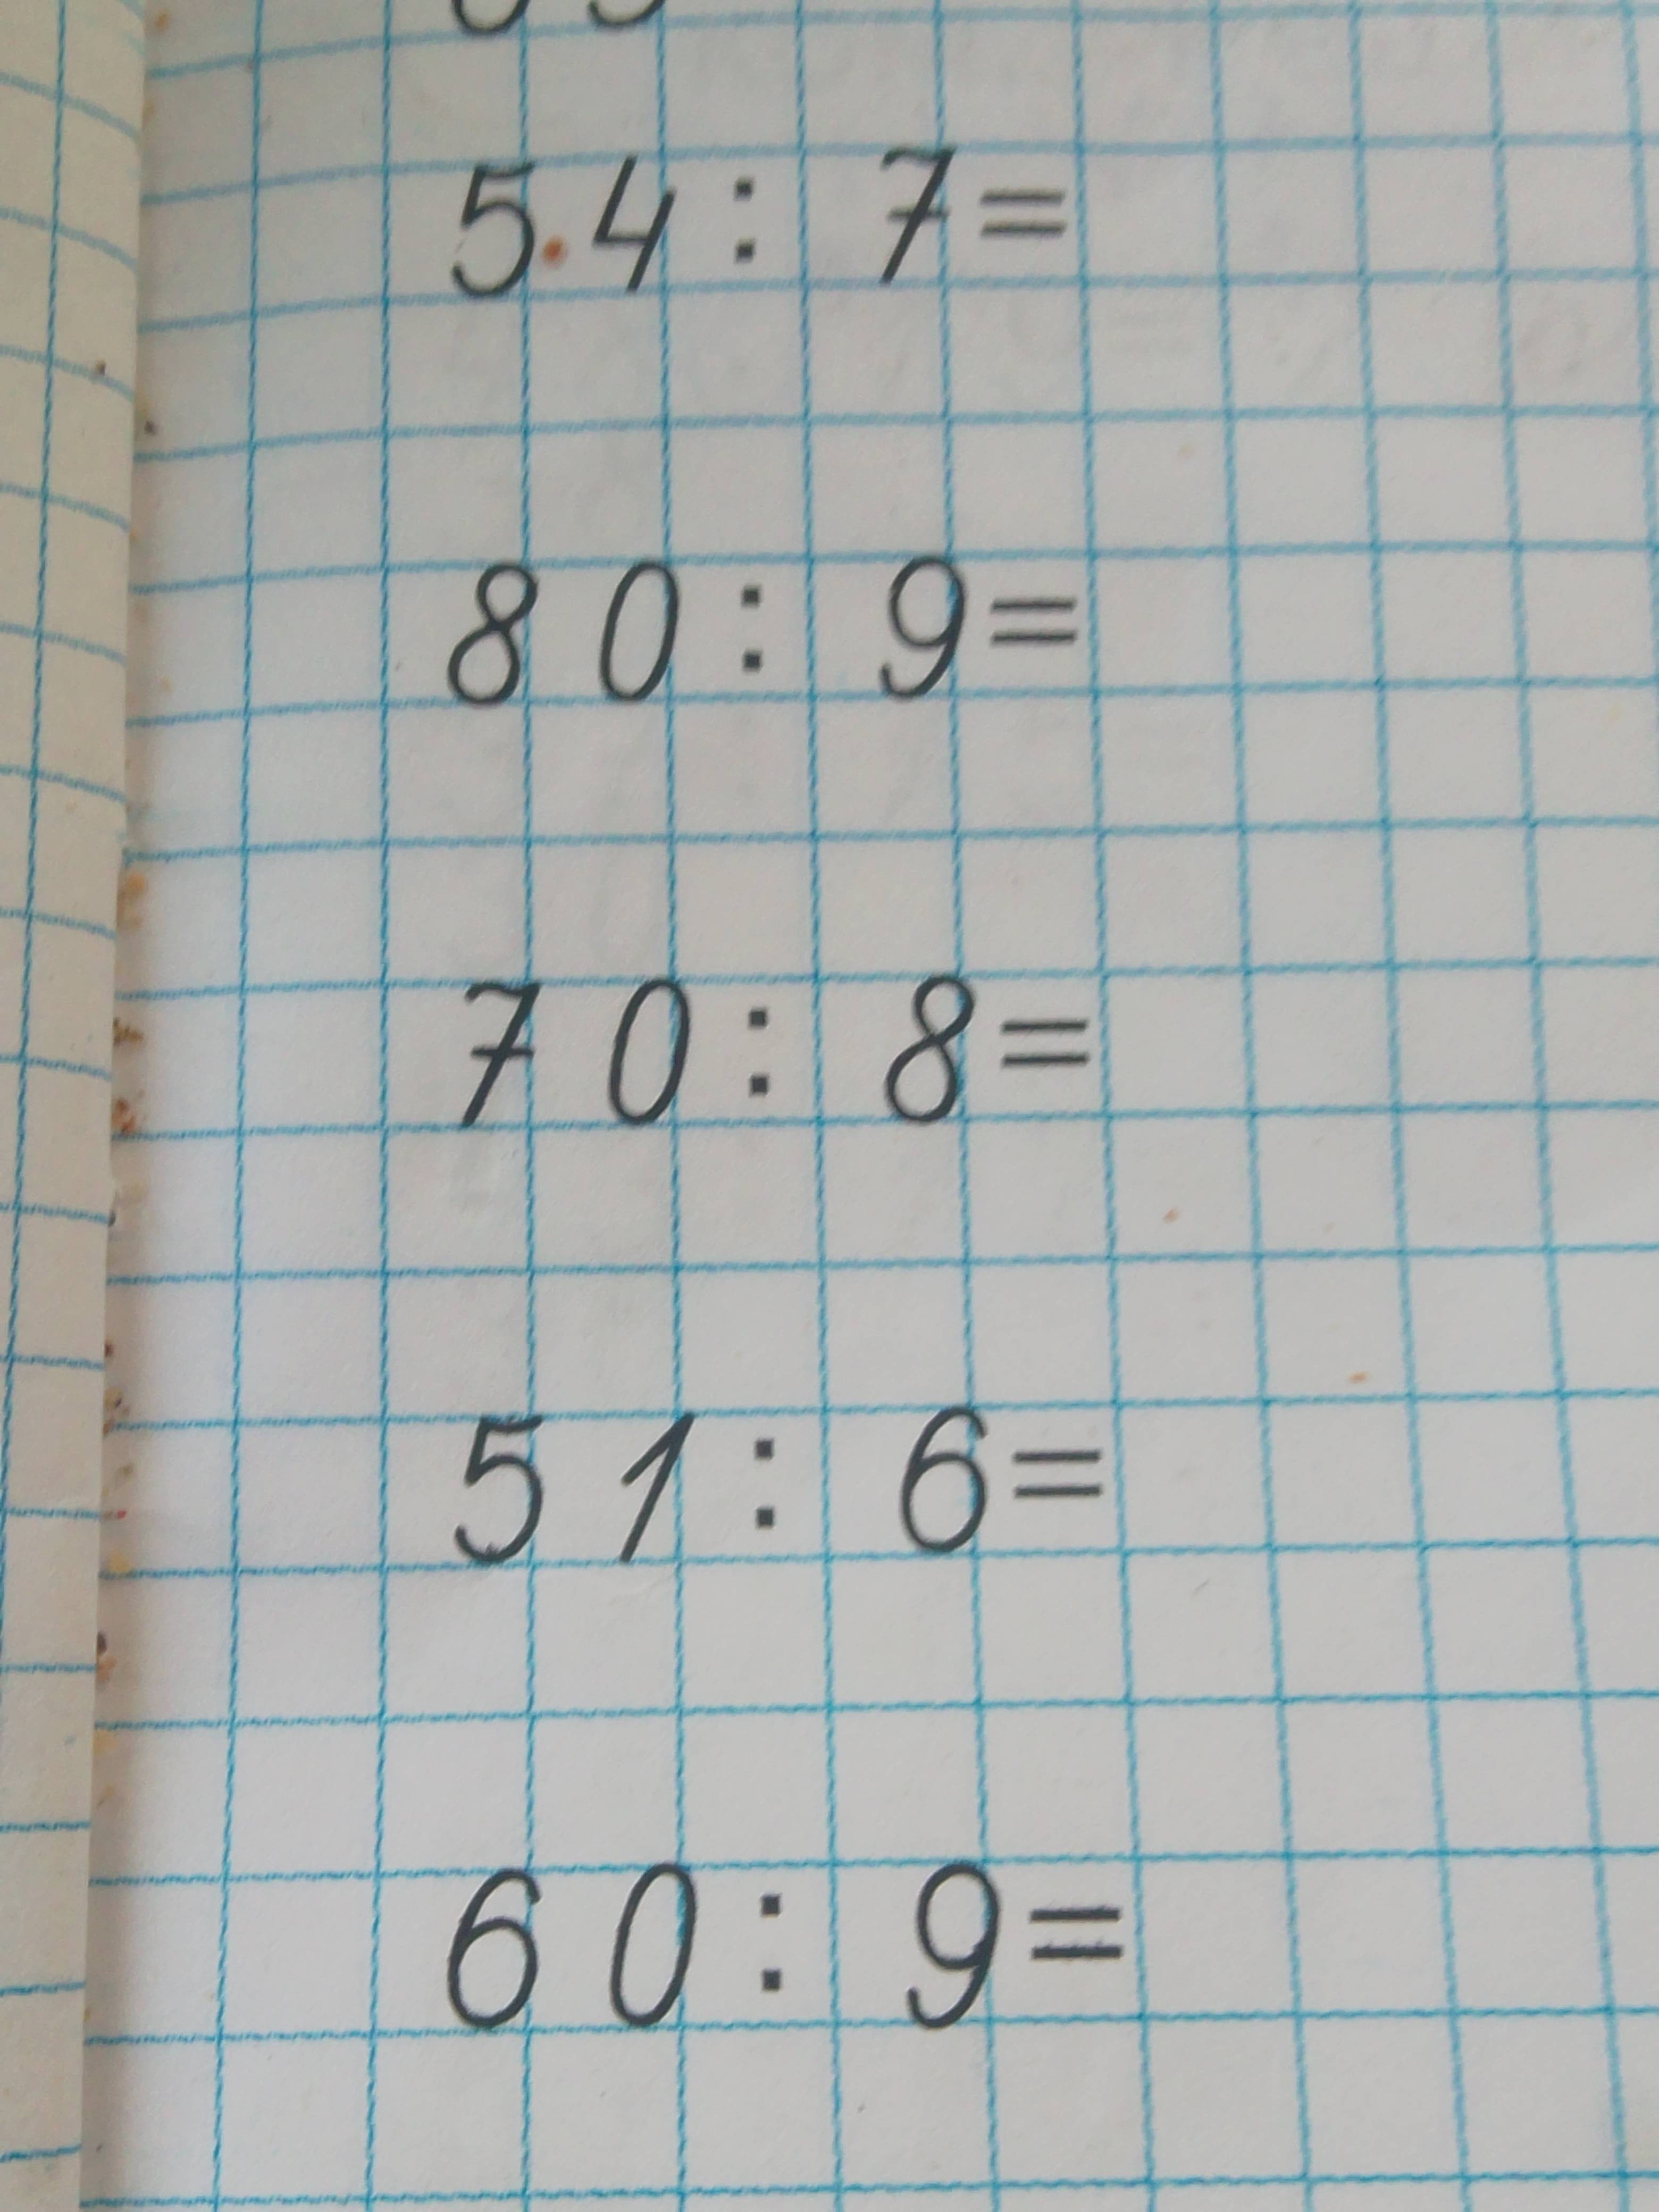 54: 7=
80: 9=
70: 8=
51: 6=
60: 9=